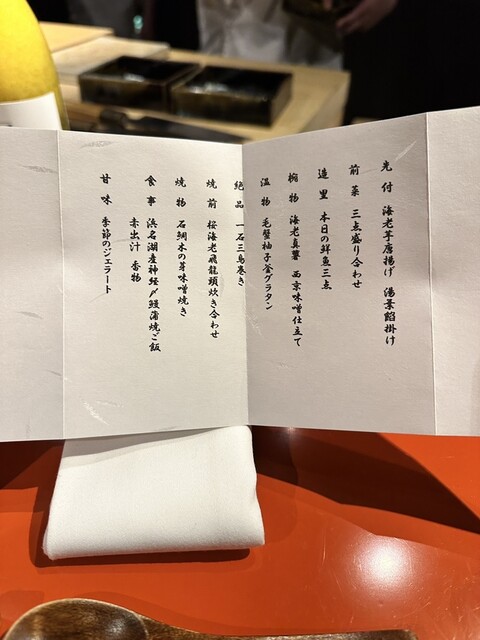 先付 海老芋唐揚げ 湯葉餡掛け
前菜 三点盛り合わせ
造里 本日の鮮魚三点
椀物 海老真薯 西京味噌仕立て
温物 毛蟹柚子釜グラタン
絶品 一石三鳥巻き
焼前 桜海老飛龍頭炊き合わせ
焼物 石鯛木の芽味噌焼き
食事 浜名湖産神経〆鰻蒲焼ご飯
赤出汁 香物
甘味 季節のジェラート